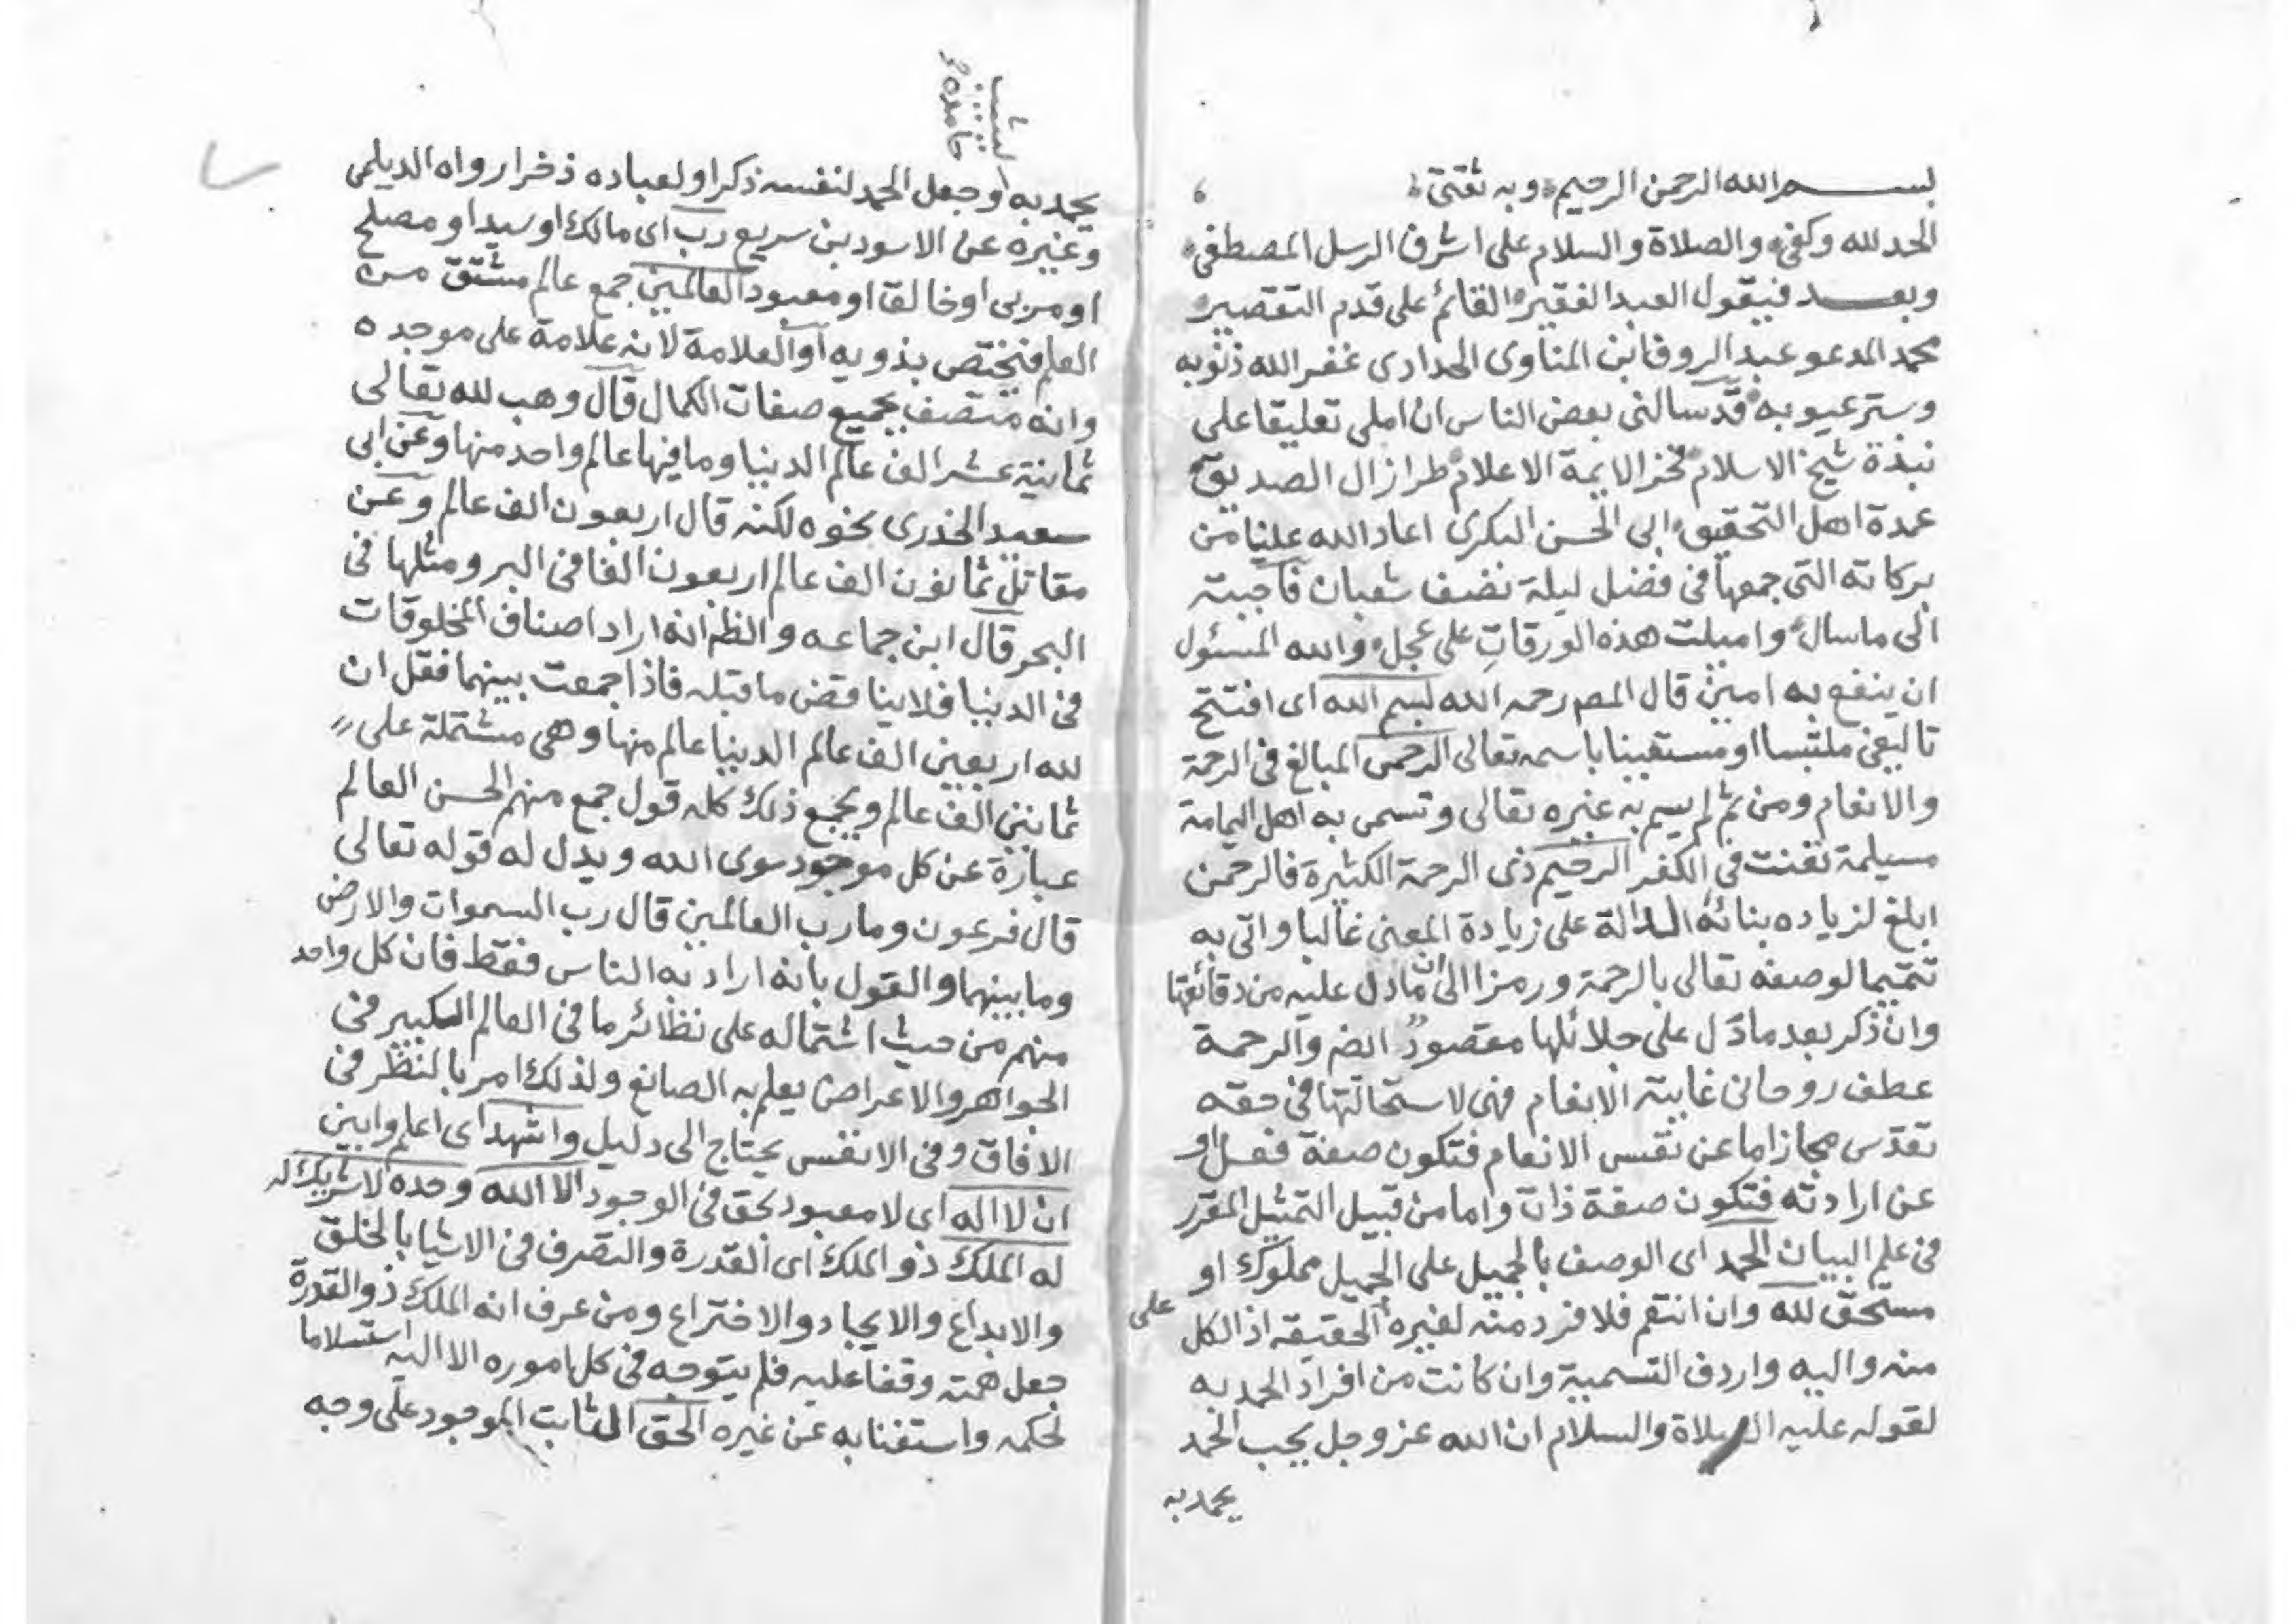 بسم الله الرحمن الرحيم وبه ثقتى
الحمد لله وكفى والصلاة والسلام على اشرف الرسل المصطفى
وبعد فيقول العبد الفقير القائم على قدم التقصير
محمد المدعو عبد الروف ابن المناوى الحدادى غفر الله ذنوبه
وستر عيوبه قد سالنى بعض الناس ان املى تعليقا على
نبذة شيخ الاسلام فخر الايمة الاعلام طراز ال الصديق
عمدة اهل التحقيق ابى الحسن البكرى اعاد الله علينا من
بركاته التى جمعها فى فضل ليلة نصف شعبان فاجبته
الى ماسال وامليت هذه الورقات على عجل والله المسئول
ان ينفع به امين قال المص رحمه الله بسم الله اى افتتح
تاليفى ملتبسا او مستعينا باسمه تعالى الرحمن المبالغ فى الرحمة
والانعام ومن ثم لم يسم به غيره تعالى وتسمى به اهل اليمامة
مسيلمة تعنت فى الكفر الرحيم ذى الرحمة الكثيرة فالرحمن
ابلغ لزياده بنائه الدالة على زيادة المعنى غالبا واتى به
تتميما لوصفه تعالى بالرحمة ورمزا الى ان مادل عليه من دقائقها
وان ذكر بعد مادل على جلائلها مقصود ايضا والرحمة
عطف روحانى غايته الانعام فهى لاستحالتها فى حقه
تقدس مجاز اما عن نفس الانعام فتكون صفة فعل او
عن ارادته فتكون صفة ذات واما من قبيل التمثيل المقرر
فى علم البيان الحمد اى الوصف بالجميل على الجميل مملوك او
مستحق لله وان انتقم فلا فرد منه لغيره على الحقيقه اذ الكل
منه واليه واردف التسمية وان كانت من افراد الحمد به
لقوله عليه الصلاة والسلام ان الله عز وجل يحب الحمد
يحمد به
يحمد به وجعل الحمد لنفسه ذكرا ولعباده ذخرا رواه الديلمى
وغيره عن الاسود بن سريع رب اى مالك او سيد او مصلح
او مربى او خالق او معبود العالمين جمع عالم مشتق من
العلم فيختص بذويه او العلامة لانه علامة على موجده
وانه متصف بجميع صفات الكمال قال وهب لله تعالى
ثمانية عشر الف عالم الدنيا ومافيها عالم واحد منها وعن ابى
سعيد الخدرى نحوه لكنه قال اربعون الف عالم وعن
مقاتل ثمانون الف عالم اربعون الفا فى البر ومثلها فى
البحر قال ابن جماعه والظ انه اراد اصناف المخلوقات
فى الدنيا فلا يناقض ماقبله فاذا جمعت بينهما فقل ان
لله اربعين الف عالم الدنيا عالم منها وهى مشتملة على
ثمانين الف عالم ويجمع ذلك كله قول جمع منهم الحسن العالم
عبارة عن كل موجود سوى الله ويدل له قوله تعالى
قال فرعون وما رب العالمين قال رب السموات والارض
ومابينهما والقول بانه اراد به الناس فقط فان كل واحد
منهم من حيث اشتماله على نظائر ما فى العالم الكبير فى
الجواهر والاعراض يعلم به الصانع ولذلك امر بالنظر فى
الافاق وفى الانفس يحتاج الى دليل واشهد اى اعلم وابين
ان لا اله اى لا معبود بحق فى الوجود الا الله وحده لا شريك له
له الملك ذو الملك اى القدرة والتصرف فى الاشيا بالخلق
والابداع والايجاد والاختراع ومن عرف انه الملك ذو القدرة
جعل همته وقفا عليه فلم يتوجه فى كل اموره الا اليه استسلاما
لحكمه واستغنا به عن غيره الحق الثابت الموجود على وجه